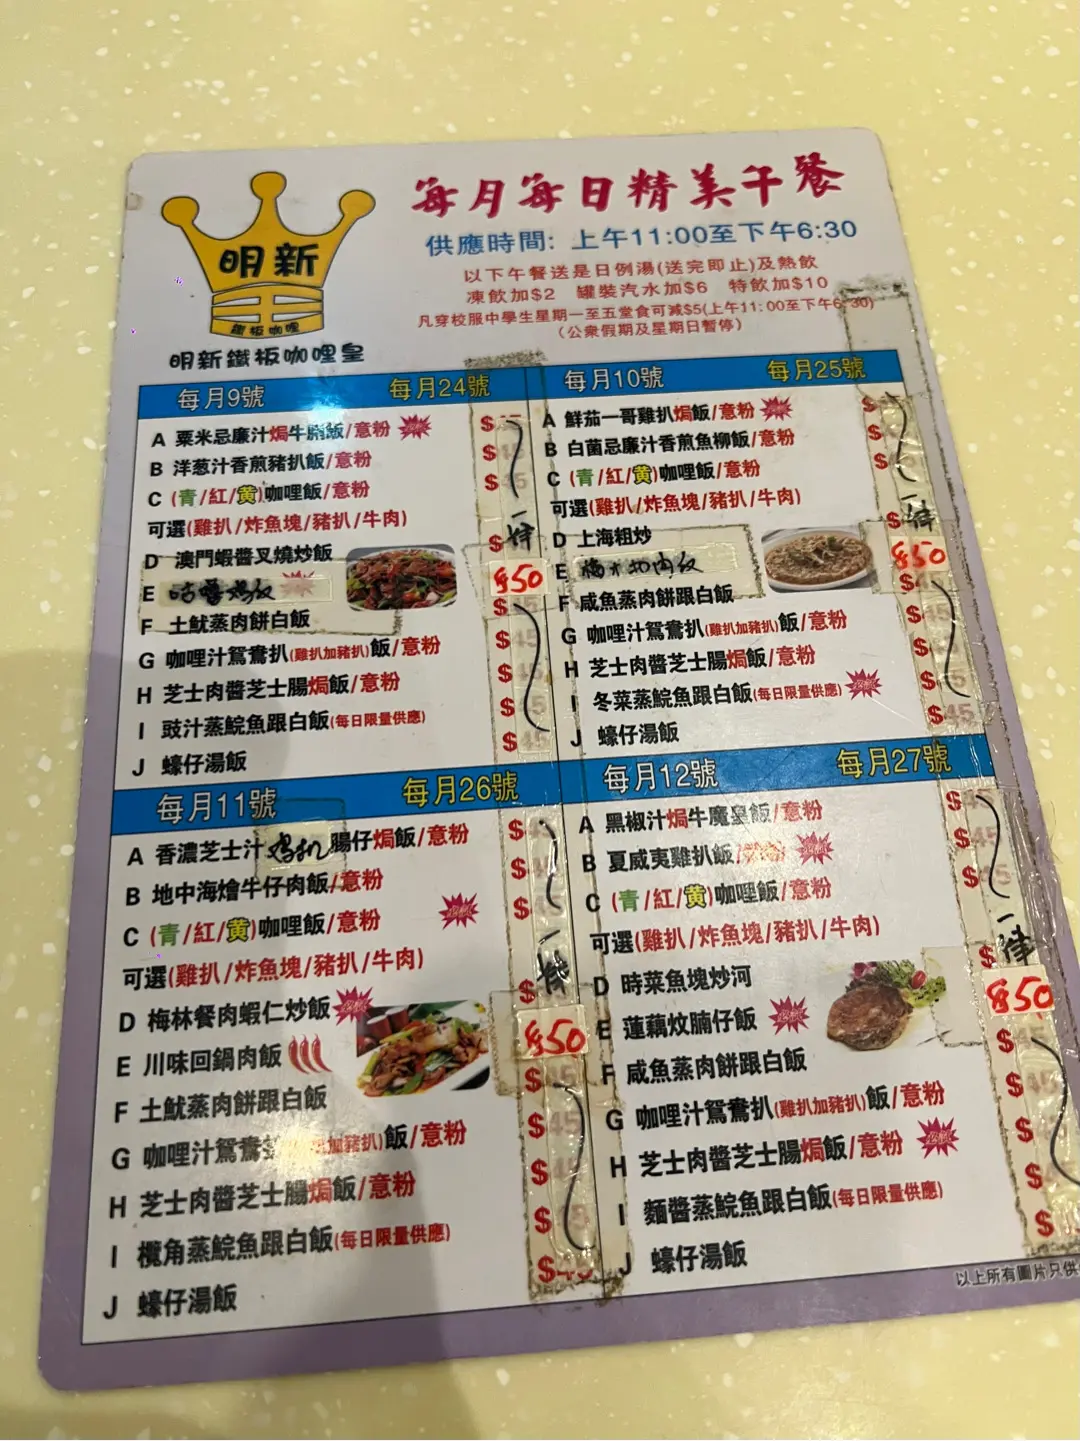 明新
鐵板咖哩
明新鐵板咖哩皇
每月每日精美午餐
供應時間: 上午11:00至下午6:30
以下午餐送是日例湯(送完即止)及熱飲
凍飲加$2 罐裝汽水加$6 特飲加$10
凡穿校服中學生星期一至五堂食可減$5(上午11:00至下午6:30)
(公眾假期及星期日暫停)
每月9號 每月24號
A 粟米忌廉汁焗牛脷飯/意粉
B 洋葱汁香煎豬扒飯/意粉
C (青/紅/黄)咖哩飯/意粉
可選(雞扒/炸魚塊/豬扒/牛肉)
D 澳門蝦醬叉燒炒飯
E
F 土魷蒸肉餅白飯
G 咖哩汁鴛鴦扒(雞扒加豬扒)飯/意粉
H 芝士肉醬芝士腸焗飯/意粉
I 豉汁蒸鯇魚跟白飯(每日限量供應)
J 蠔仔湯飯
一律
$50
每月10號 每月25號
A 鮮茄一哥雞扒焗飯/意粉
B 白菌忌廉汁香煎魚柳飯/意粉
C (青/紅/黄)咖哩飯/意粉
可選(雞扒/炸魚塊/豬扒/牛肉)
D 上海粗炒
E
F 咸魚蒸肉餅跟白飯
G 咖哩汁鴛鴦扒(雞扒加豬扒)飯/意粉
H 芝士肉醬芝士腸焗飯/意粉
I 冬菜蒸鯇魚跟白飯(每日限量供應)
J 蠔仔湯飯
一律
$50
每月11號 每月26號
A 香濃芝士汁鸡扒腸仔焗飯/意粉
B 地中海燴牛仔肉飯/意粉
C (青/紅/黄)咖哩飯/意粉
可選(雞扒/炸魚塊/豬扒/牛肉)
D 梅林餐肉蝦仁炒飯
E 川味回鍋肉飯
F 土魷蒸肉餅跟白飯
G 咖哩汁鴛鴦 加豬扒)飯/意粉
H 芝士肉醬芝士腸焗飯/意粉
I 欖角蒸鯇魚跟白飯(每日限量供應)
J 蠔仔湯飯
一律
$50
$45
每月12號 每月27號
A 黑椒汁焗牛魔皇飯/意粉
B 夏威夷雞扒飯
C (青/紅/黄)咖哩飯/意粉
可選(雞扒/炸魚塊/豬扒/牛肉)
D 時菜魚塊炒河
E 蓮藕炆腩仔飯
F 咸魚蒸肉餅跟白飯
G 咖哩汁鴛鴦扒(雞扒加豬扒)飯/意粉
H 芝士肉醬芝士腸焗飯/意粉
I 麵醬蒸鯇魚跟白飯(每日限量供應)
J 蠔仔湯飯
一律
$50
以上所有圖片只供